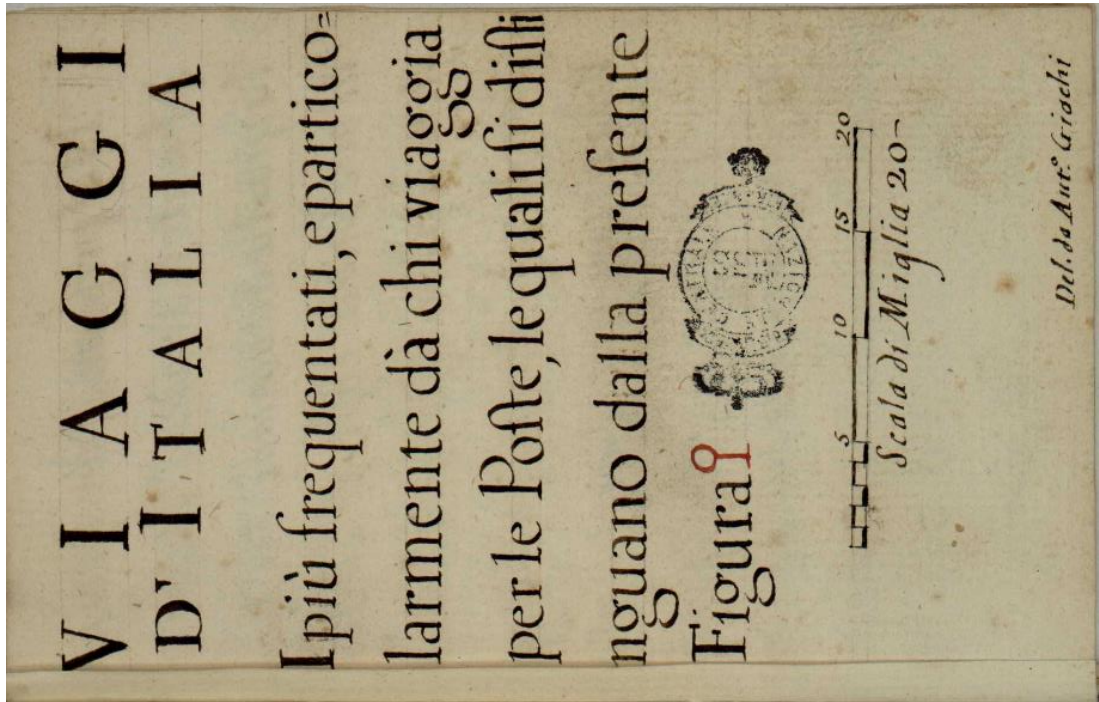 VIAGGI
D' ITALIA
I più frequentati, e partico=
larmente dà chi viaggia
per le Poſte, le quali ſi diſti
nguano dalla preſente
Figura
5 10 15 20
Scala di Miglia 20
Del. da Ant.º Criachi